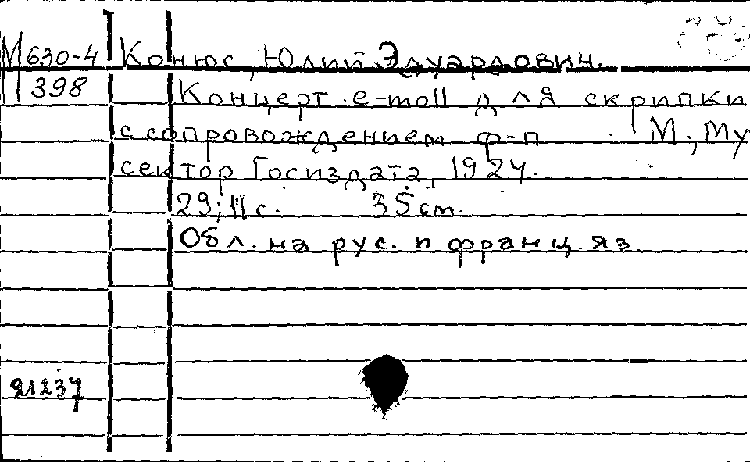 М 630-4 Конюс, Юлий Эдуардович.
398 Концерт e-moll для скрипки
с сопровождением ф-п М., Му
сектор Госиздата, 1924.
29; 11 с. 35 cm.
Обл. на рус. и франц яз.
21237